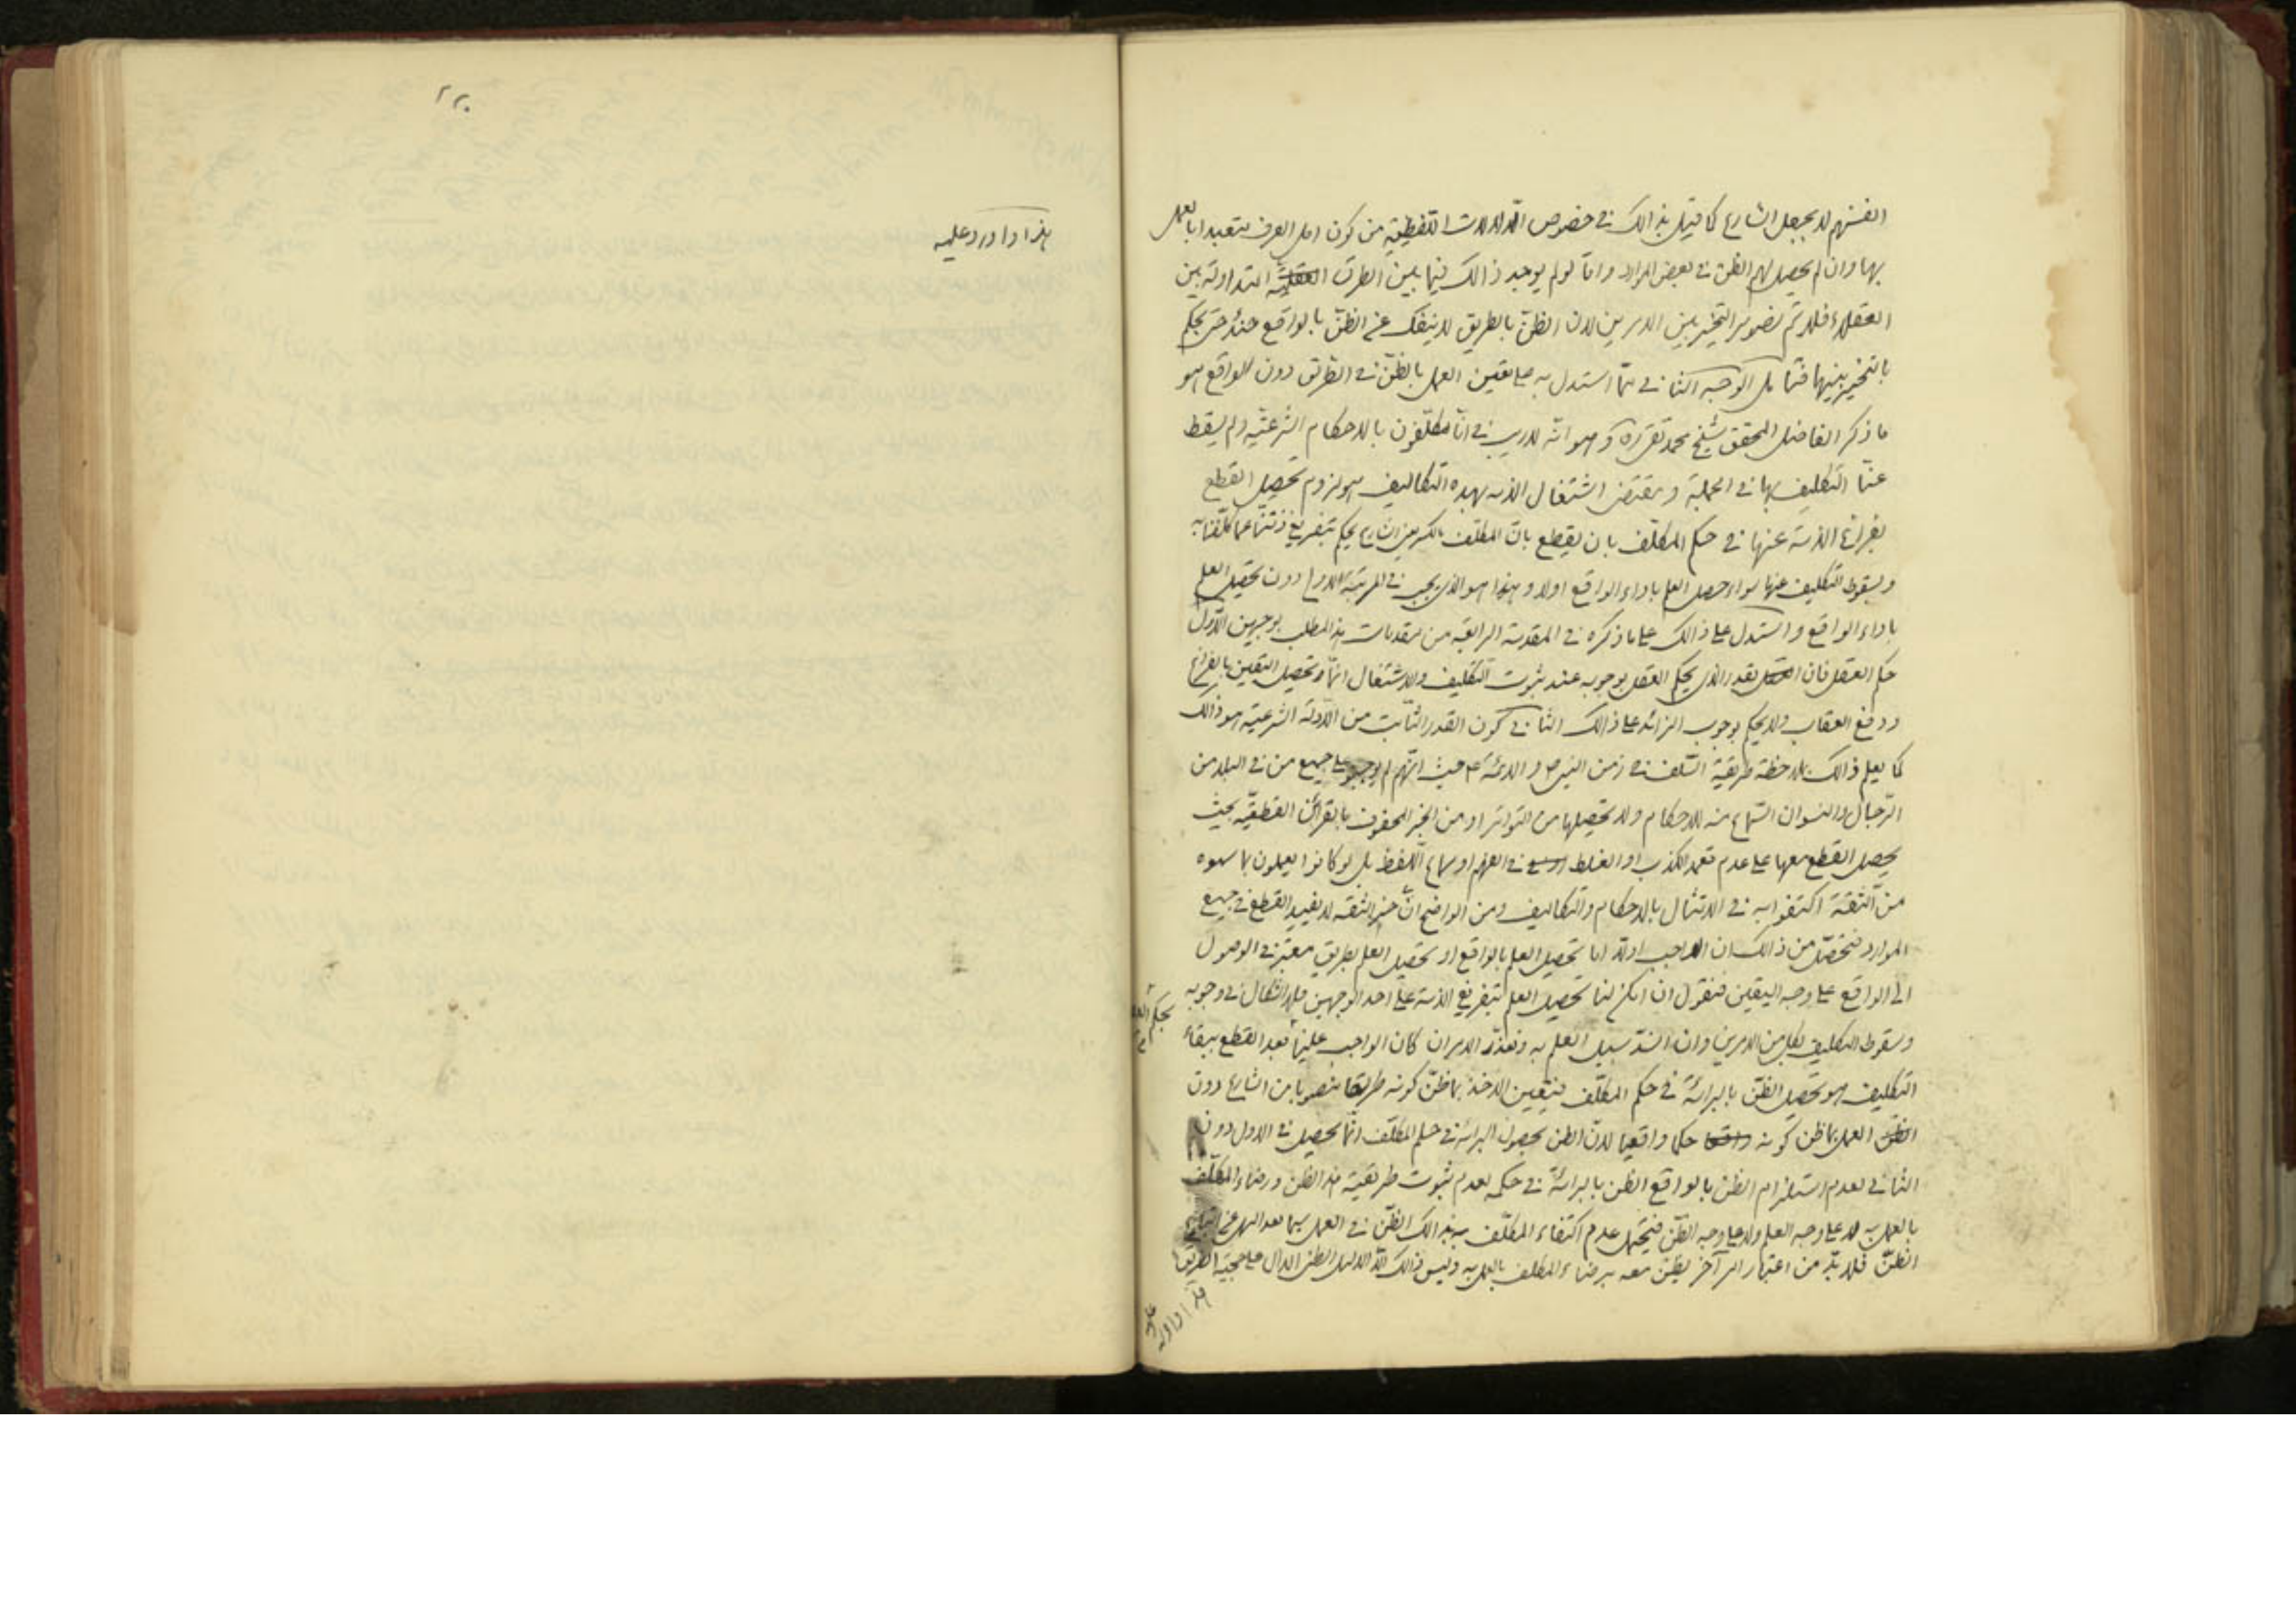 انفسهم لا بجعل الشارع كما قيل بذالك في خصوص الدلالات اللفظية من كون اهل العرف متعبدا بالعمل
بها وان لم يحصل لهم الظن في بعض الموارد واما لو لم يوجد ذالك فيما بين الطرق المتداولة بين
العقلاء فلا تصوير التخيير بين الامرين لان الظن بالطريق لا ينفك عن الظن بالواقع حتى يحكم
بالتخيير بينهما فتامل الوجه الثاني مما استدل به على تعين العمل بالظن في الطريق دون الواقع هو
ما ذكر الفاضل المحقق شيخ محمد تقي ره وهو انه لا ريب في انا مكلفون بالاحكام الشرعية ولم يسقط
عنا التكليف بها في الجملة ومقتضى اشتغال الذمه بهذه التكاليف هو لزوم تحصيل القطع
بفراغ الذمة عنها في حكم المكلف بان يقطع بان المكلف بالكسر يحكم بتفريغ ذمتنا عما كلفنا به
وبسقوط التكليف عنها سواء حصل العلم باداء الواقع اولا وهذا هو الذي يجب في المرتبة الاولى دون تحصيل العلم
باداء الواقع واستدل على ذالك على ما ذكره في المقدمة الرابعة من مقدمات هذا المطلب بوجهين الاول
حكم العقل فان القدر الذي يحكم العقل بوجوبه عند ثبوت التكليف والاشتغال انما هو تحصيل اليقين بالفراغ
ودفع العقاب ولا يحكم بوجوب الزائد على ذالك الثاني كون القدر الثابت من الادلة الشرعية هو ذالك
كما يعلم ذالك بملاحظة طريقة السلف في زمن النبي ص والائمة ع حيث انهم لم يوجبوا على جميع من في البلد من
الرجال والنسوان السماع منه للاحكام ولا تحصيلها من التواتر او من الخبر المحفوف بالقرائن القطعية بحيث
يحصل القطع معها على عدم تعمد الكذب او الغلط في الفهم او سماع اللفظ بل لو كانوا يعملون بما سمعوه
من الثقة اكتفوا به في الامتثال بالاحكام والتكاليف ومن الواضح ان خبر الثقة لا يفيد القطع في جميع
الموارد فتحصل من ذالك ان الواجب اولا اما تحصيل العلم بالواقع او تحصيل العلم بطريق معتبر في الوصول
الى الواقع على وجه اليقين فنقول ان امكن لنا تحصيل العلم بتفريغ الذمة على احد الوجهين فلا اشكال في وجوبه
وسقوط التكليف بكل من الامرين وان انسد سبيل العلم به وتعذر الامران كان الواجب علينا بعد القطع ببقاء
التكليف هو تحصيل الظن بالبرائة في حكم المكلف فيتعين الاخذ بما ظن كونه طريقا منصوبا من الشارع دون
العمل بما ظن كونه حكما واقعيا لان الظن بحصول البرائة في حكم المكلف انما يحصل في الاول دون
الثاني لعدم استلزام الظن بالواقع الظن بالبرائة في حكمه لعدم ثبوت طريقية هذا الظن ورضاء المكلف
بالعمل به لا على وجه العلم ولا على وجه الظن فيحتمل عدم اكتفاء المكلف بذالك الظن في العمل سيما بعد النهي عن اتباع
الظن فلا بد من اعتبار امر آخر يظن معه برضاء المكلف بالعمل به وليس ذالك الا الدليل الظني الدال على حجية الطريق
بحكم
هذا واورد
عليه
٢٢٠
هذا واورد عليه